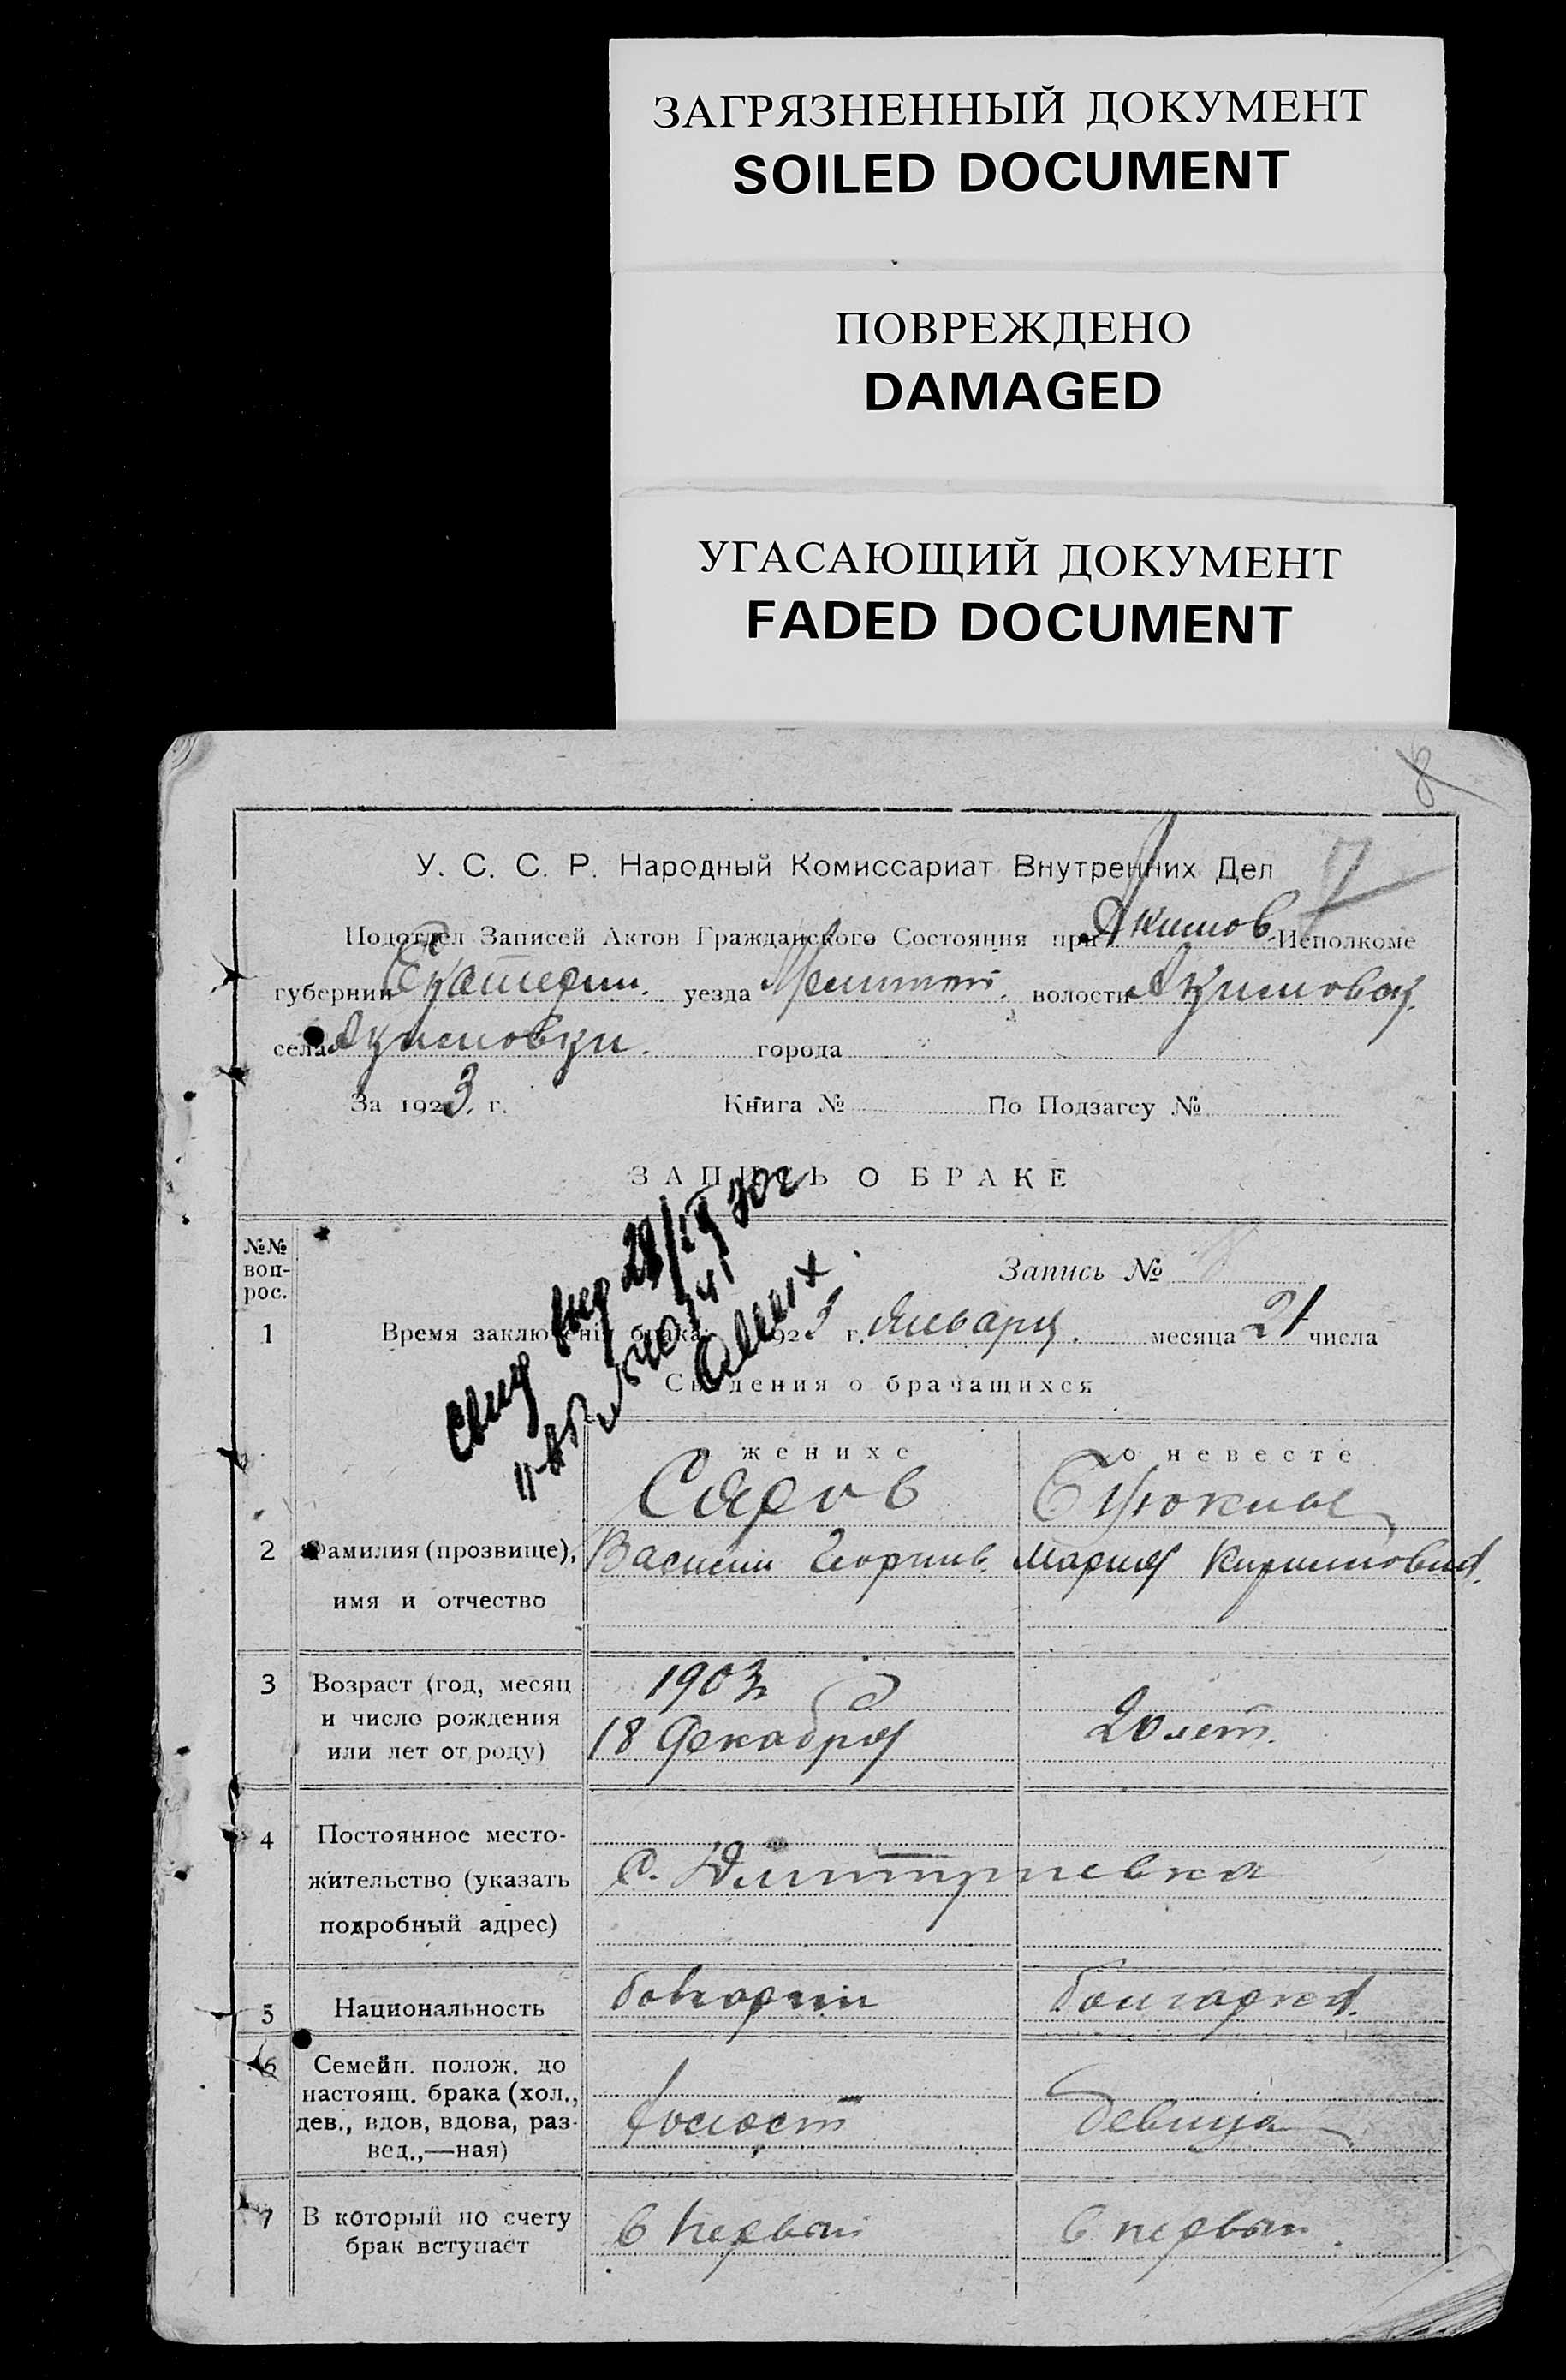 ЗАГРЯЗНЕННЫЙ ДОКУМЕНТ
SOILED DOCUMENT
ПОВРЕЖДЕНО
DAMAGED
УГАСАЮЩИЙ ДОКУМЕНТ
FADED DOCUMENT
8
У. С. С. Р. Народный Комиссариат Внутренних Дел
Подотдел Записей Актов Гражданского Состояния при Акимов. Исполкоме
губернии Екатерин. уезда волости Акимовск.
села Акимовки. города
За 1923 г. Книга № По Подзагсу №
ЗАПИСЬ О БРАКЕ
№№ воп-рос.
Запись №
1 Время заключения брака 1923 г. Января. месяца 21 числа
Свид выд
Сведения о брачащихся
о женихе о невесте
Сяров
2 Фамилия (прозвище), имя и отчество
Василий Георгиев. Мария Кирилловна.
3 Возраст (год, месяц и число рождения или лет от роду)
1903
18 Декабря 20 лет.
4 Постоянное место-жительство (указать подробный адрес)
с. Дмитриевка
5 Национальность болгарин болгарка.
6 Семейн. полож. до настоящ. брака (хол., дев., вдов, вдова, раз-вед.,—ная)
холост девица
7 В который по счету брак вступает
в первый в первый